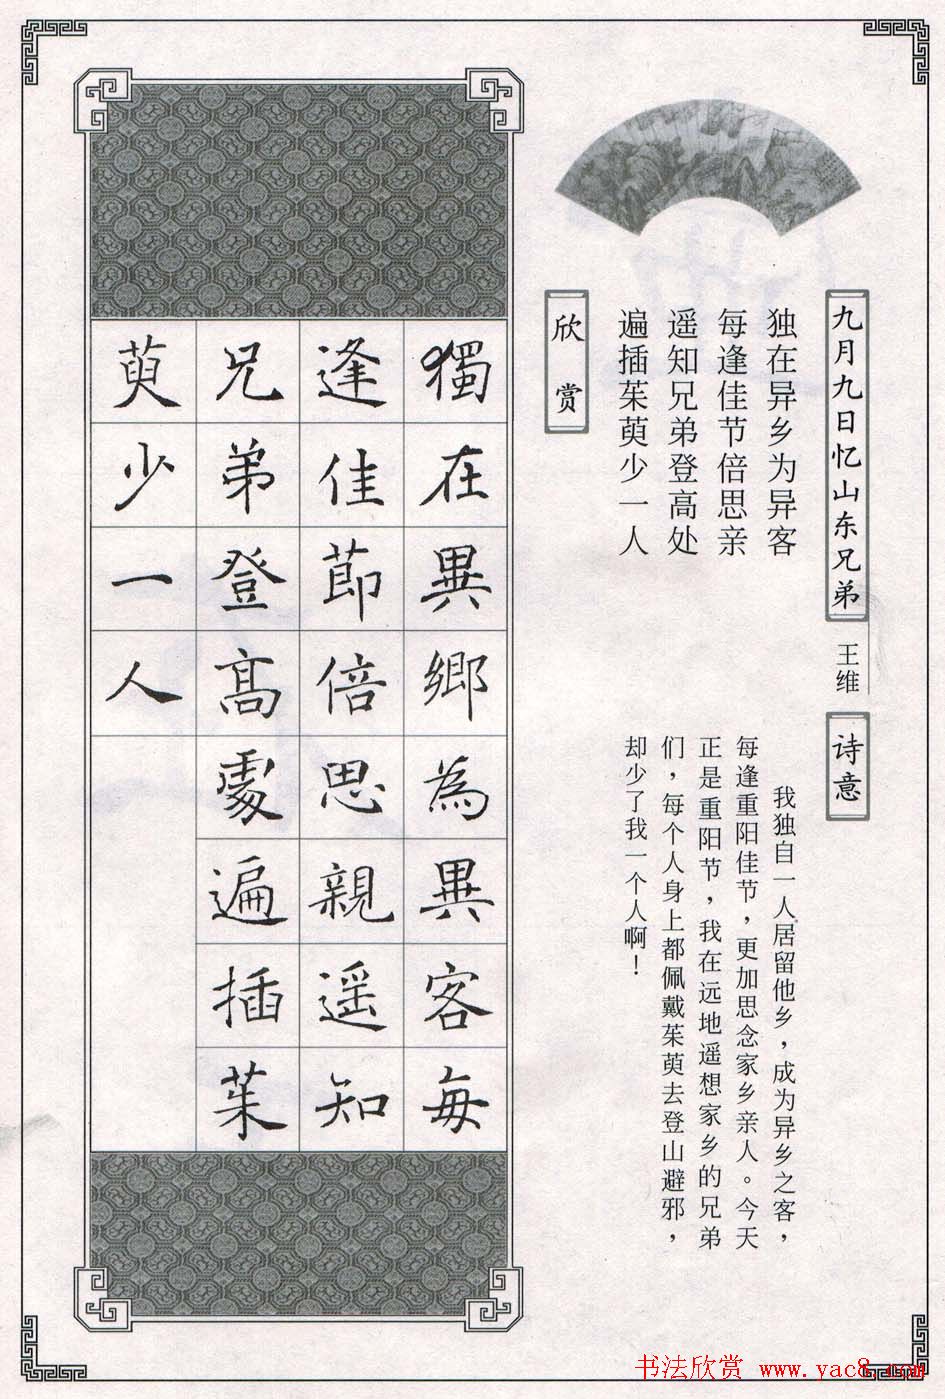 九月九日忆山东兄弟
王维
独在异乡为异客
每逢佳节倍思亲
遥知兄弟登高处
遍插茱萸少一人
诗意
我独自一人居留他乡，成为异乡之客，
每逢重阳佳节，更加思念家乡亲人。今天
正是重阳节，我在远地遥想家乡的兄弟
们，每个人身上都佩戴茱萸去登山避邪，
却少了我一个人啊！
欣赏
獨在異鄉為異客每
逢佳節倍思親遥知
兄弟登高處遍插茱
萸少一人
书法欣赏 www.yac8.com